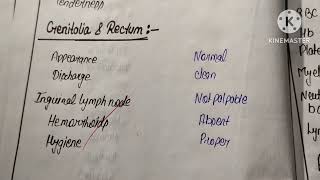 Tenderness
Genitalia & Rectum :-
Appearance Normal
Discharge clean
Inguinal lymph node Not palpable
Hemorrhoids Absent
Hygiene Proper
RBC
Hb
Plate
Myel
Neut
KINEMASTER